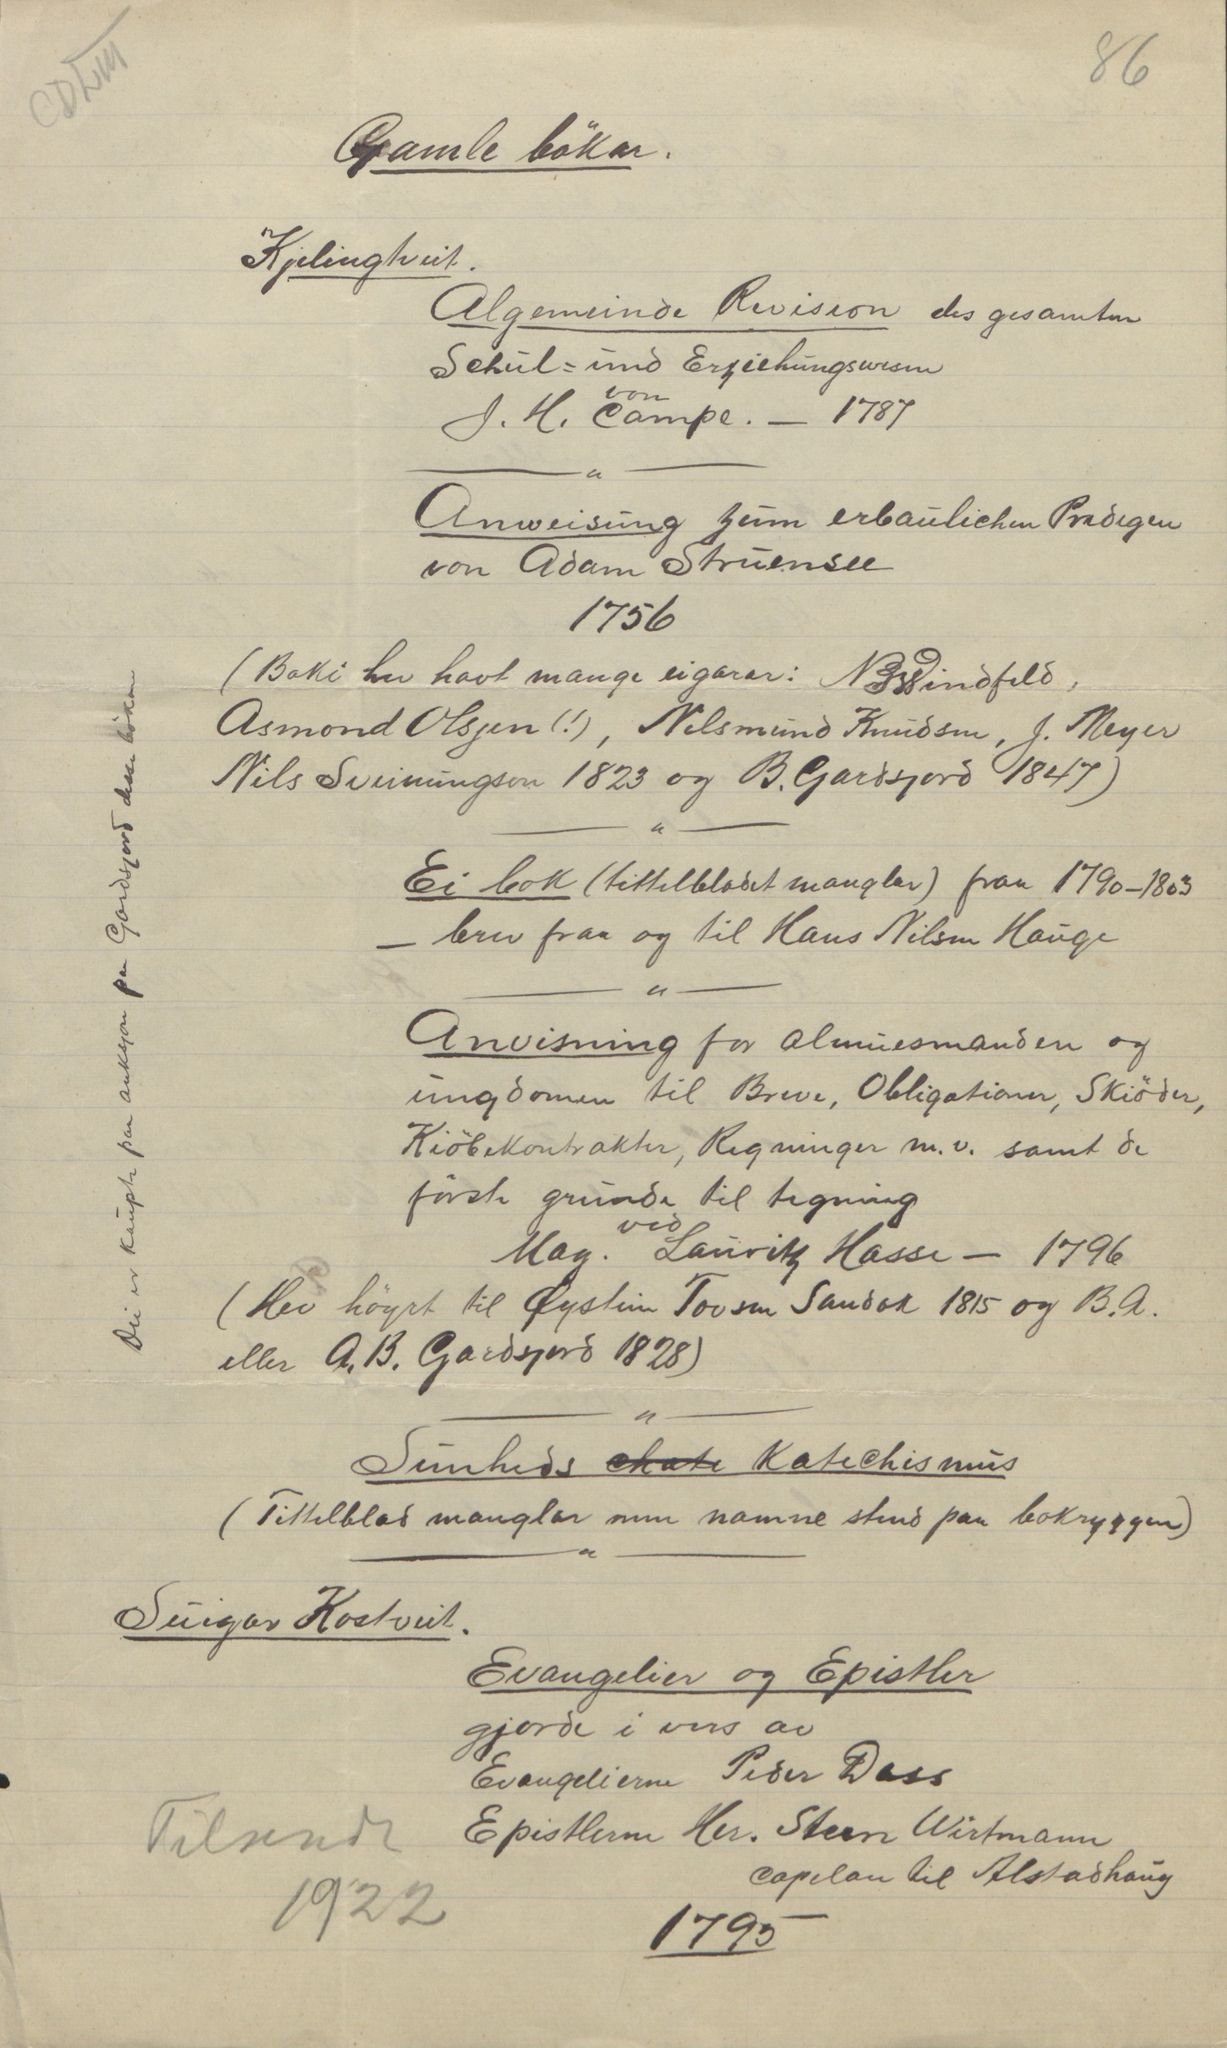 86
CDLIII
Gamle bökar.
Kjelingtveit.
Algemeinde Revision des gesamten
Schul= und Erziehungswesen
von
J. H. Campe. — 1787
Anweisung zum erbaulichen Predigen
von Adam Struensee
1756
(Boki hev havt mange eigarar: Windfeld,
Asmond Olsjen (!), Nilsmund Knudsen, J. Meyer
Nils Sveinungson 1823 og B. Gardsjord 1847)
Ei bok (tittelbladet manglar) fraa 1790–1803
— brev fraa og til Hans Nilsen Hauge
Anvisning for almuesmanden og
ungdomen til Breve, Obligationer, Skiöder,
Kiöbekontrakter, Regninger m.v. samt de
förste grunde til tegning
ved
Mag. Lauritz Hasse — 1796
(Hev höyrt til Øystein Tovsen Sandok 1815 og B.A.
eller A.B. Gardsjord 1828)
Sunheds chate Katechismus
(Tittelblad manglar men namne stend paa bokryggen)
Svigar Kostveit.
Evangelier og Epistler
gjorde i vers av
Evangelierne Peder Dass
Epistlerne Her. Steen Wirtmann
capelan til Alstadhaug
1795
Tilsendt
1922
Dei er kaupte paa auksjon paa Gardsjord desse bökan